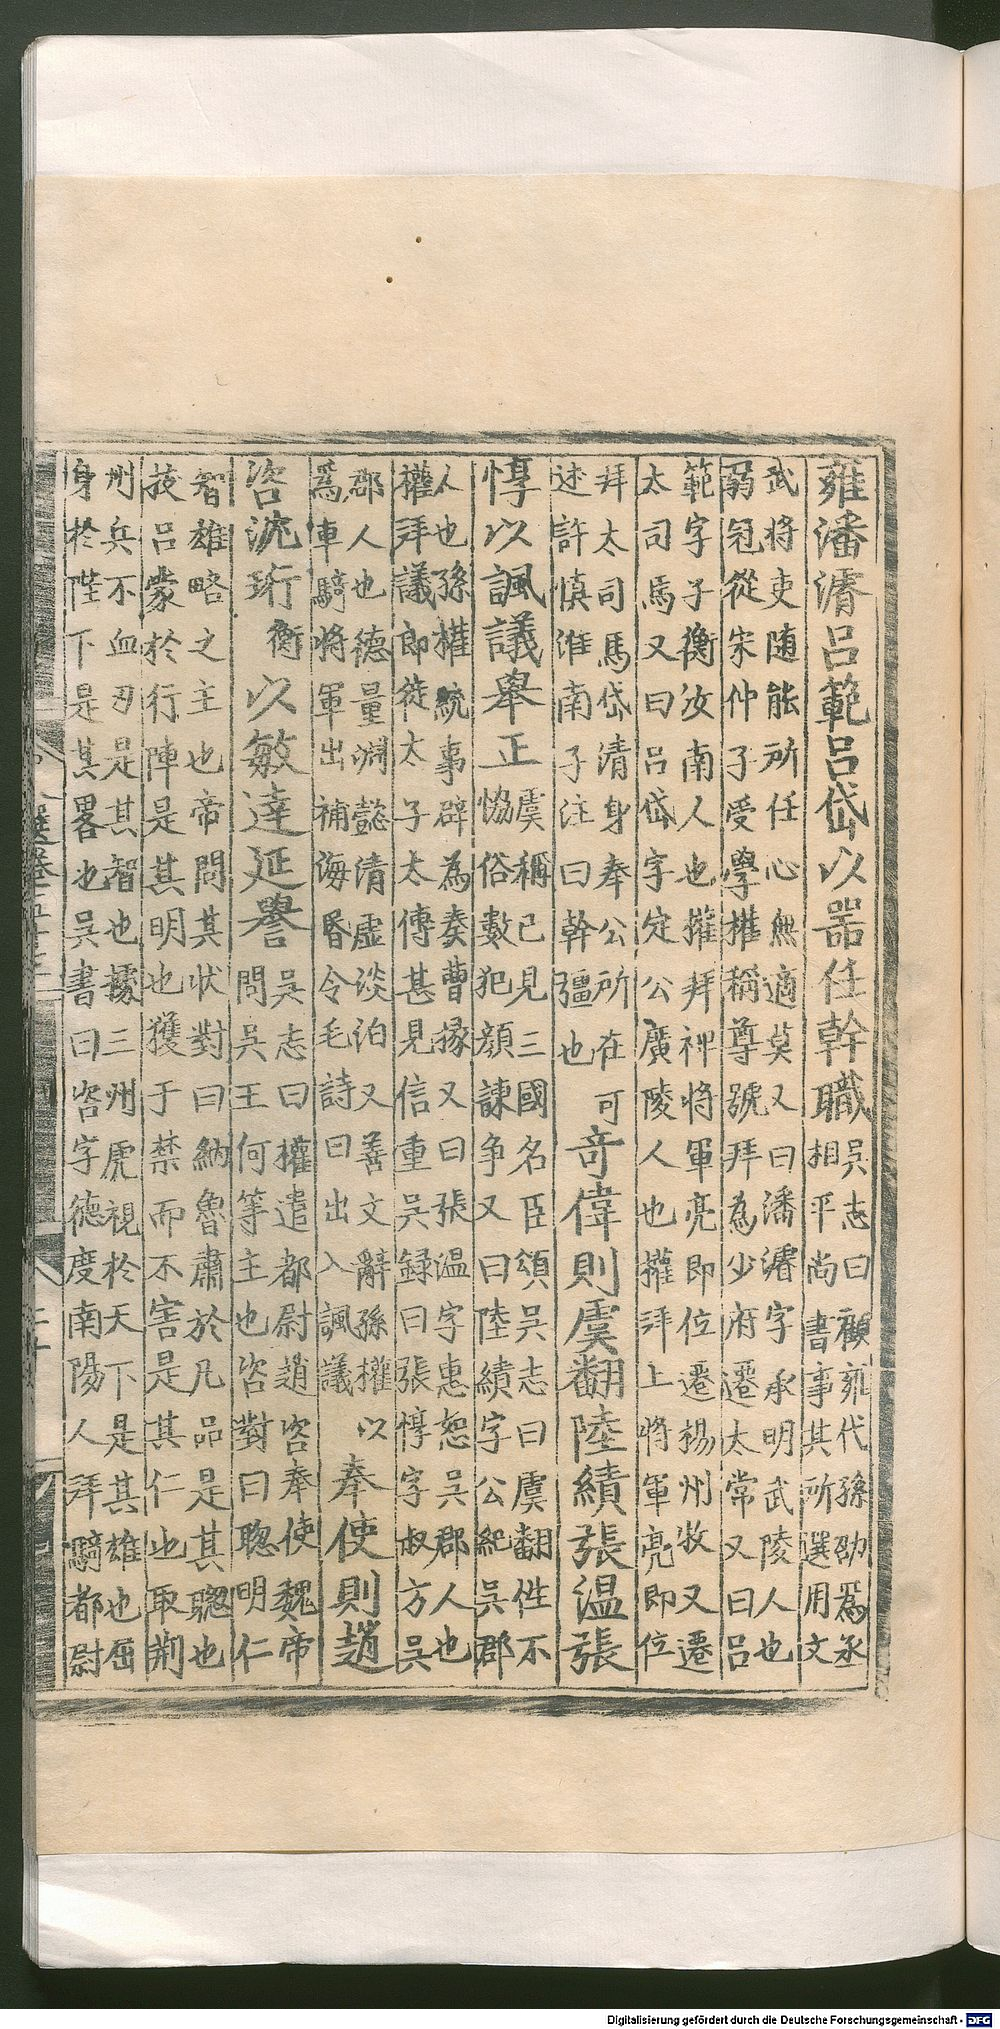 雍潘濬呂範呂岱以噐任幹職 吳志曰顧雍代孫劭爲丞
相平尚書事其所選用文
武將吏随能所任心無適莫又曰潘濬字承明武陵人也
弱冠從宋仲子受學權稱尊號拜為少府遷太常又曰呂
範字子衡汝南人也權拜裨將軍亮即位遷揚州牧又遷
太司馬又曰呂岱字定公廣陵人也權拜上將軍亮即位
拜太司馬岱清身奉公所在可
述許慎淮南子注曰幹彊也 竒偉則虞翻陸績張温張
惇以諷議舉正 虞稱已見三國名臣頌吳志曰虞翻性不
恊俗數犯顔諫争又曰陸績字公紀吳郡
人也孫權統事辟為奏曹掾又曰張温字惠恕吳郡人也
權拜議郎徙太子太傅甚見信重吳録曰張惇字叔方吳
郡人也德量淵懿清虛淡泊又善文辭孫權以
爲車騎將軍出補海昬令毛詩曰出入諷議 奉使則趙
咨沈珩衡以敏達延譽 吳志曰權遣都尉趙咨奉使魏帝
問吳王何等主也咨對曰聦明仁
智雄略之主也帝問其状對曰納魯肅於凡品是其聦也
技呂蒙於行陣是其明也獲于禁而不害是其仁也取荆
州兵不血刃是其智也據三州虎視於天下是其雄也屈
身於陛下是其畧也吳書曰咨字德度南陽人拜騎都尉
選卷五十三
Digitalisierung gefördert durch die Deutsche Forschungsgemeinschaft - DFG